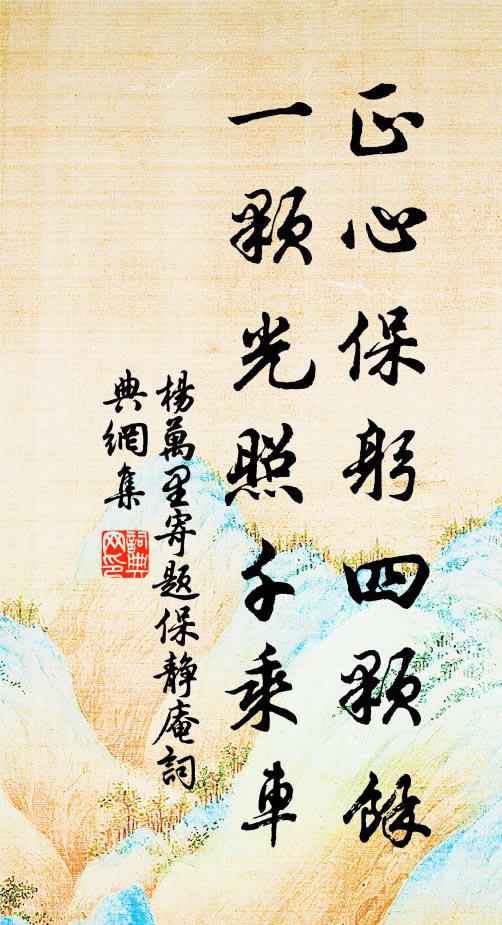 正心保躬四颗餘
一颗光照千乘車
楊萬里寄题保靜庵詞
典網集
詞典
网印